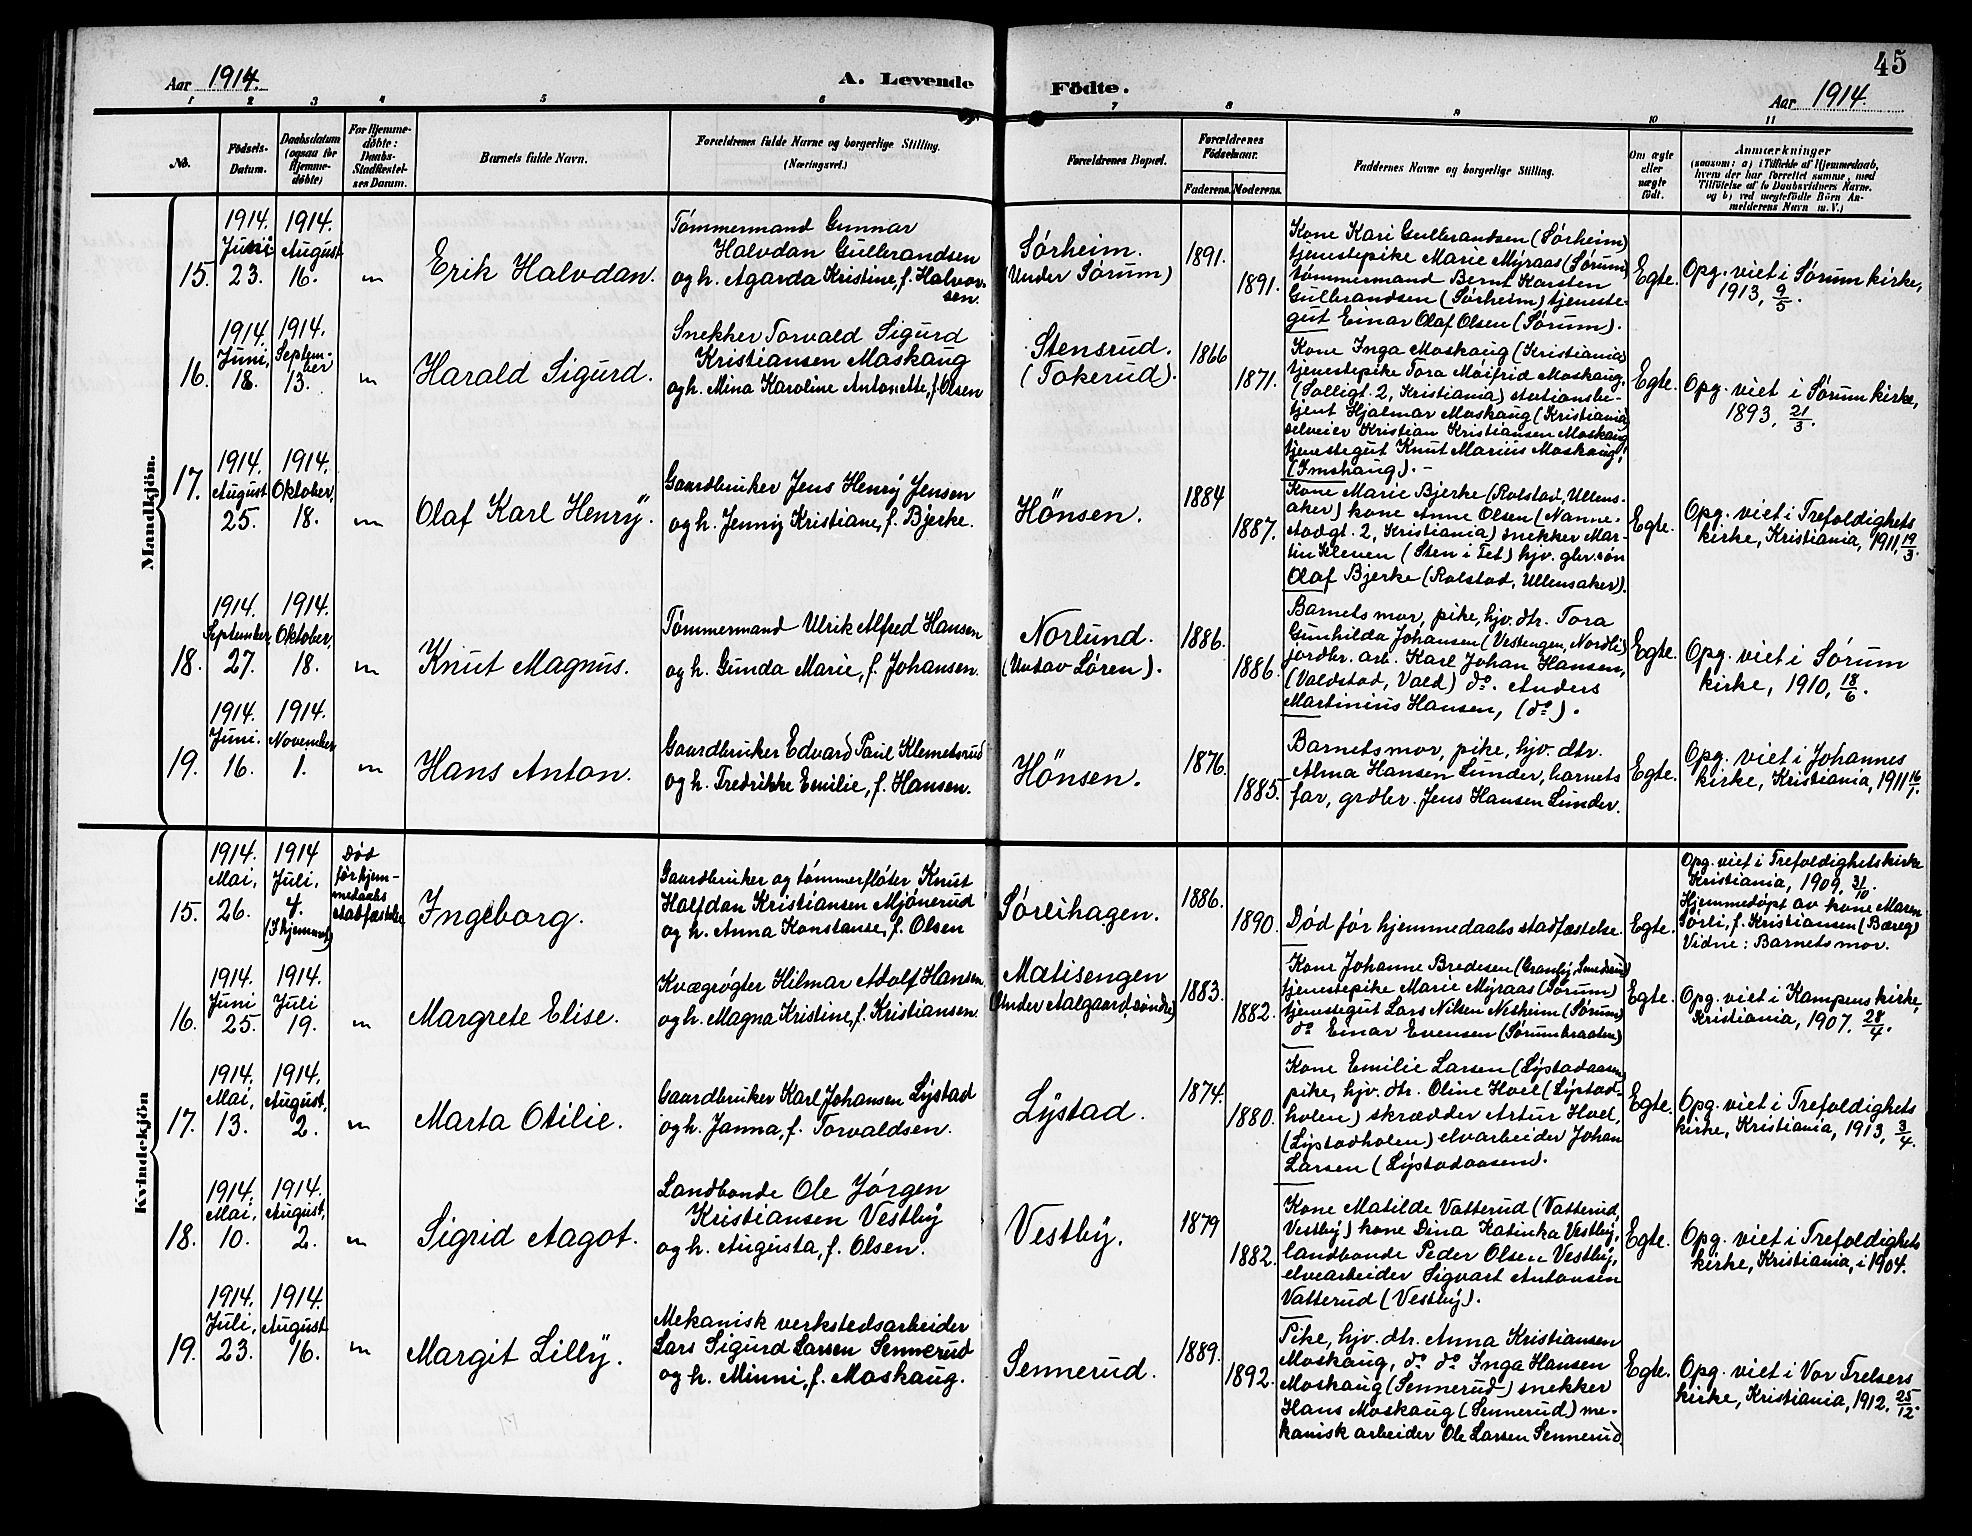 45
Aar 1914.
A. Levende
Födte.
Aar 1914.
1 2 3 4 5 6 7 8 9 10 11
No.
Födsels-
Datum.
Daabsdatum
(ogsaa for
Hjemme-
döbte)
For Hjemme-
döbte:
Daabs-
Stadfæstel-
ses Datum.
Barnets fulde Navn.
Forældrenes fulde Navne og borgerlige Stilling.
(Næringsvei.)
Forældrenes Bopæl.
Forældrenes
Födselsaar.
Faderens.
Moderens.
Faddernes Navne og borgerlige Stilling.
Om ægte
eller
uægte
födt.
Anmærkninger
(saasom: a) i Tilfælde af Hjemmedaab,
hvem der har forrettet samme, med
Tilföielse af to Daabsvidners Navne.
og b) ved uægtefödte Börn An-
melderens Navn m. V.)
Mandkjön.
15.
1914.
Juni
23.
1914.
August
16.
"
Erik Halvdan.
Tømmermand Gunnar
Halvdan Gulbrandsen
og h. Agarda Kristine, f. Halvor-
sen.
Sørheim.
(Under Sørum)
1891.
1891.
Kone Kari Gulbrandsen (Sørheim)
tjenestepike Marie Myraas (Sørum)
tømmermand Bernt Karsten
Gulbrandsen (Sørheim) tjeneste-
gut Einar Olaf Olsen (Sørum).
Egte.
Opg. viet i Sørum kirke,
1913, 9/5.
16.
1914.
Juni,
18.
1914.
Septem-
ber
13.
"
Harald Sigurd.
Snekker Torvald Sigurd
Kristiansen Moskaug
og h. Mina Karoline Antonette, f. Olsen
Stensrud.
(Tokerud).
1866
1871.
Kone Inga Moskaug (Kristiania)
tjenestepike Tora Maifrid Moskaug,
(Solligt. 2, Kristiania) stationsbe-
tjent Hjalmar Moskaug (Kristiania)
selveier Kristian Kristiansen Moskaug
tjenestegut Knut Marius Moskaug,
(Imshaug). -
Egte.
Opg. viet i Sørum kirke,
1893, 21/3.
17.
1914.
August
25.
1914.
Oktober,
18.
"
Olaf Karl Henrÿ.
Gaardbruker Jens Henrÿ Jensen
og h. Jennÿ Kristiane, f. Bjerke.
Hönsen.
1884
1887.
Kone Marie Bjerke (Rolstad, Ullens-
aker) kone Anne Olsen (Nanne-
stadgt. 2, Kristiania) snekker Mar-
tin Kleven (Sten i Fet) hjv. gbr. søn
Olaf Bjerke (Rolstad, Ullensaker).
Egte.
Opg. viet i Trefoldighets
kirke, Kristiania, 1911, 19/3.
18.
1914.
September,
27.
1914.
Oktober,
18.
"
Knut Magnus.
Tømmermand Ulrik Alfred Hansen
og h. Gunda Marie, f. Johansen.
Norlund.
(Untav Løren).
1886.
1886.
Barnets mor, pike, hjv. dtr. Tora
Gunhilda Johansen (Vestengen, Nordli)
jordbr. arb. Karl Johan Hansen,
(Valdstad, Vald) do. Anders
Martinius Hansen, (do).
Egte.
Opg. viet i Sørum
kirke, 1910, 18/6.
19.
1914.
Juni.
16.
1914.
November
1.
"
Hans Anton.
Gaardbruker Edvard Paul Klemetsrud
og h. Fredrikke Emilie, f. Hansen.
Hönsen.
1876.
1885.
Barnets mor, pike, hjv. dtr.
Alma Hansen Sunder, barnets
far, grdbr. Jens Hansen Sunder.
Egte.
Opg. viet i Johannes
kirke, Kristiania, 1911 16/1.
Kvindekjön
15.
1914.
Mai,
26.
1914
Juli,
4.
(Ihjemmet)
Død
før hjem-
medaabs
stadfæstelse
Ingeborg.
Gaardbruker og tømmerfløter Knut
Halfdan Kristiansen Mjönerud
og h. Anna Konstanse, f. Olsen
Sørlihagen.
1886.
1890.
Død før hjemmedaabs stadfæstelse.
Egte.
Opg. viet i Trefoldighetskirke
Kristiania, 1909, 31/10.
Hjemmedøpt av kone Maren
Sørli, f. Kristiansen (Bæreg)
Vidne: Barnets mor.
16.
1914.
Juni
25.
1914.
Juli
19.
"
Margrete Elise.
Kvægrøgter Hilmar Adolf Hansen
og h. Magna Kristine, f. Kristiansen.
Matisengen
(Under Aalgaard, søndre)
1883.
1882.
Kone Johanne Bredesen (Granby, Smedsrud)
tjenestepike Marie Myraas (Sørum)
tjenestegut Lars Nilsen Nesheim (Sørum)
do Einar Evensen (Sørumbraaten)
Egte.
Opg. viet i Kampens kirke,
Kristiania, 1907. 28/4.
17.
1914.
Mai,
13.
1914.
August,
2.
"
Marta Otilie.
Gaardbruker Karl Johansen Lÿstad
og h. Janna, f. Torvaldsen.
Lÿstad.
1874.
1880.
Kone Emilie Larsen (Lÿstadaasen)
pike, hjv. dtr. Oline Hoel (Lÿstad-
holen) skrædder Artur Hoel,
(Lÿstadholen) elvarbeider Johan
Larsen (Lÿstadaasen).
Egte.
Opg. viet i Trefoldighets
kirke, Kristiania, 1913, 3/4.
18.
1914.
Mai,
10.
1914.
August,
2.
"
Sigrid Aagot.
Landbonde Ole Jørgen
Kristiansen Vestbÿ
og h. Augusta, f. Olsen.
Vestbÿ.
1879
1882.
Kone Matilde Vatterud (Vatterud,
Vestbÿ) kone Dina Katinka Vestbÿ,
landbonde Peder Olsen Vestbÿ,
elvearbeider Sigvart Antonsen
Vatterud (Vestbÿ).
Egte.
Opg. viet i Trefoldighets
kirke, Kristiania, i 1904.
19.
1914.
Juli,
23.
1914.
August
16.
"
Margit Lillÿ.
Mekanisk verkstedsarbeider
Lars Sigurd Larsen Sennerud
og h. Minni, f. Moskaug.
Sennerud.
1889.
1892.
Pike, hjv. dtr. Anna Kristiansen
Moskaug, do do Inga Hansen
Moskaug (Sennerud) snekker
Hans Moskaug (Sennerud) me-
kanisk arbeider Ole Larsen Sennerud.
Egte.
Opg. viet i Vor Frelsers
kirke, Kristiania, 1912. 25/12.